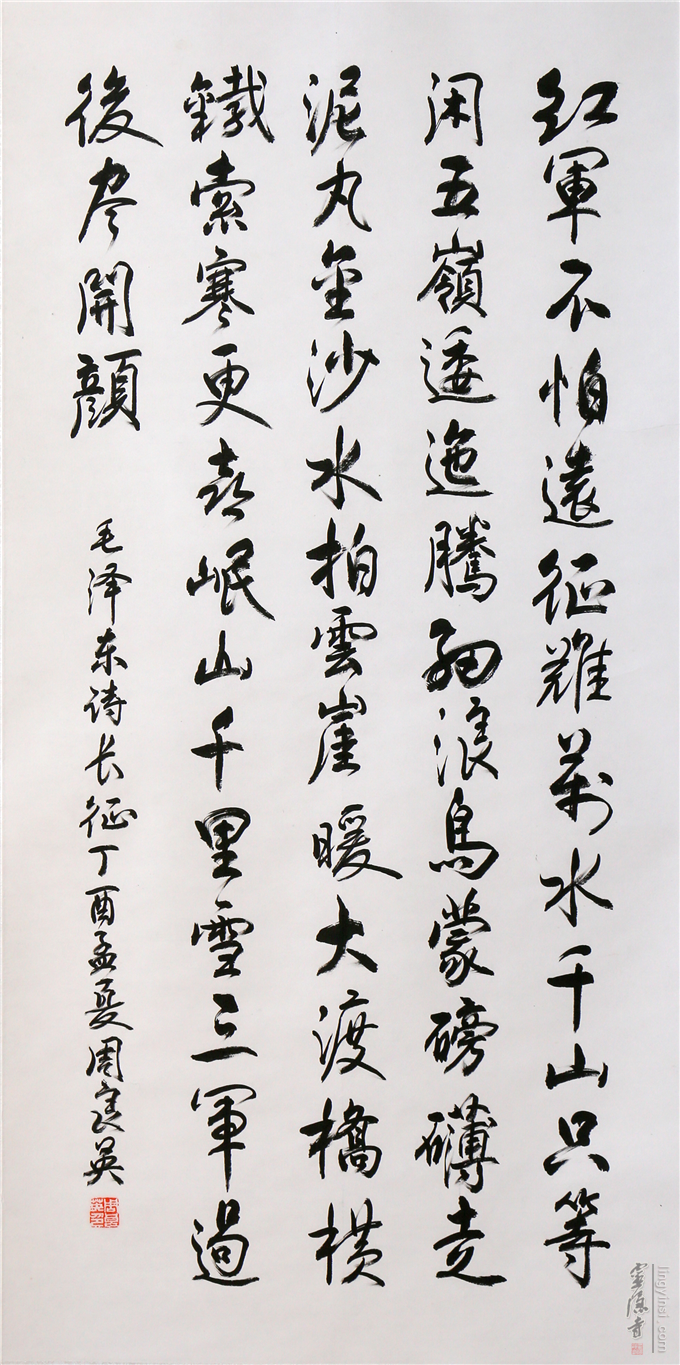 红軍不怕遠征難萬水千山只等
闲五嶺逶迤騰細浪烏蒙磅礴走
泥丸金沙水拍雲崖暖大渡橋横
鐵索寒更喜岷山千里雪三軍過
後尽開顔
毛泽东诗长征丁酉孟夏周良英
靈隱寺
lingyinsi.com